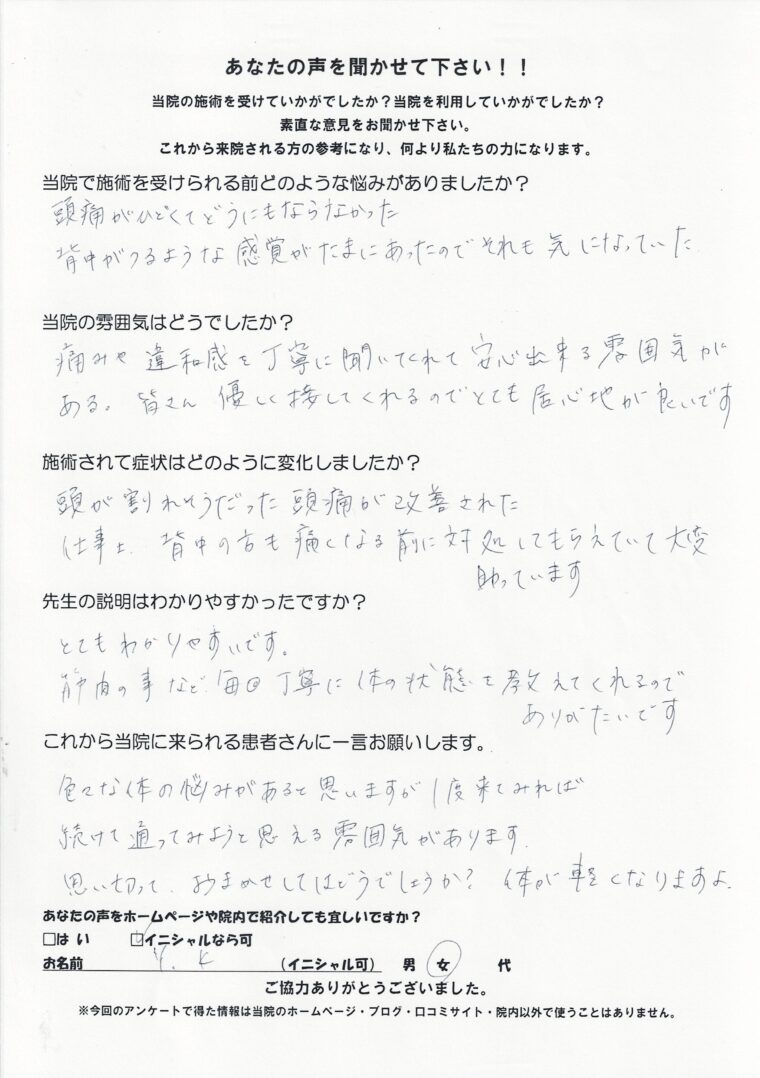 あなたの声を聞かせて下さい！！
当院の施術を受けていかがでしたか？当院を利用していかがでしたか？
素直な意見をお聞かせ下さい。
これから来院される方の参考になり、何より私たちの力になります。
当院で施術を受けられる前どのような悩みがありましたか？
頭痛がひどくてどうにもならなかった
背中がつるような感覚がたまにあったのでそれも気になっていた
当院の雰囲気はどうでしたか？
痛みや違和感を丁寧に聞いてくれて安心出来る雰囲気が
ある。皆さん優しく接してくれるのでとても居心地が良いです
施術されて症状はどのように変化しましたか？
頭が割れそうだった頭痛が改善された
背中の方も痛くなる前に対処してもらえていて大変
助っています
先生の説明はわかりやすかったですか？
とてもわかりやすいです。
筋肉の事など、毎回丁寧に体の状態を教えてくれるので
ありがたいです
これから当院に来られる患者さんに一言お願いします。
色々な体の悩みがあると思いますが1度来てみれば
続けて通ってみようと思える雰囲気があります。
思い切って、おまかせしてはどうでしょうか？ 体が軽くなりますよ。
あなたの声をホームページや院内で紹介しても宜しいですか？
□はい ☑イニシャルなら可
お名前 Y. K （イニシャル可） 男 女 代
ご協力ありがとうございました。
※今回のアンケートで得た情報は当院のホームページ・ブログ・口コミサイト・院内以外で使うことはありません。